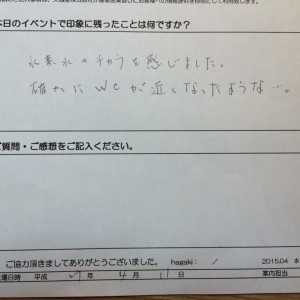 本日のイベントで印象に残ったことは何ですか?
水素水のチカラを感じました。
確かにWCが近くなったような…。
ご質問・ご感想をご記入ください。
ご協力頂きましてありがとうございました。 hagaki: / 2015.04 水
日時 平成 27年 4月 11日 案内担当